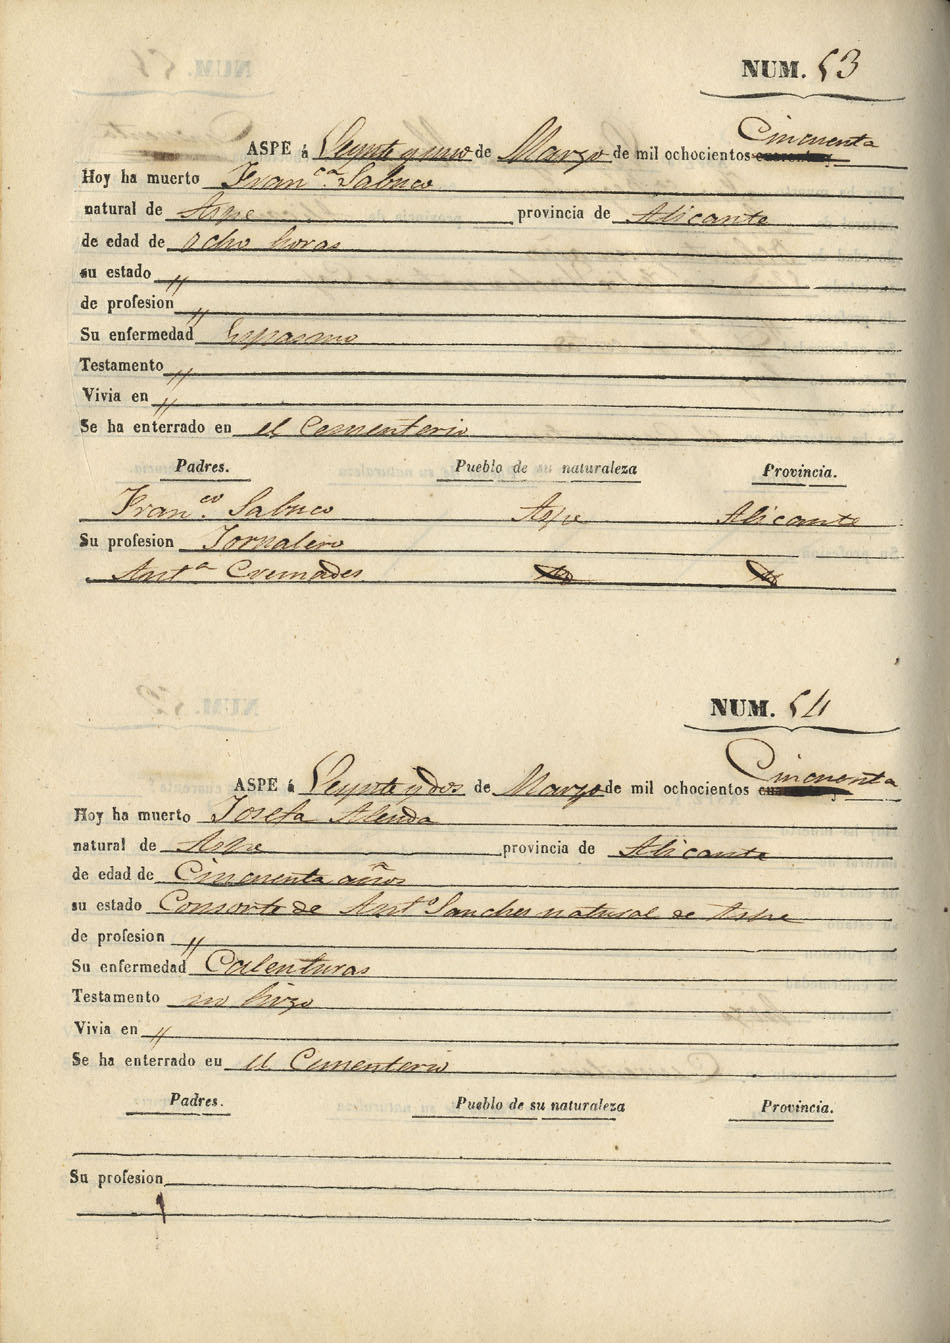 NUM. 53
ASPE á Veynte y uno de Marzo de mil ochocientos Cincuenta
Hoy ha muerto Fran.ca Sabuco
natural de Aspe provincia de Alicante
de edad de ocho horas
su estado "
de profesion "
Su enfermedad Espasmo
Testamento "
Vivia en "
Se ha enterrado en el Cementerio
Padres. Pueblo de su naturaleza Provincia.
Fran.co Sabuco Aspe Alicante
Su profesion Jornalero
Ant.a Cremades
NUM. 54
ASPE á Veynte y dos de Marzo de mil ochocientos Cincuenta
Hoy ha muerto Josefa Alenda
natural de Aspe provincia de Alicante
de edad de Cincuenta años
su estado Consorte de Ant.o Sanches natural de Aspe
de profesion "
Su enfermedad Calenturas
Testamento no hizo
Vivia en "
Se ha enterrado en el Cementerio
Padres. Pueblo de su naturaleza Provincia.
Su profesion